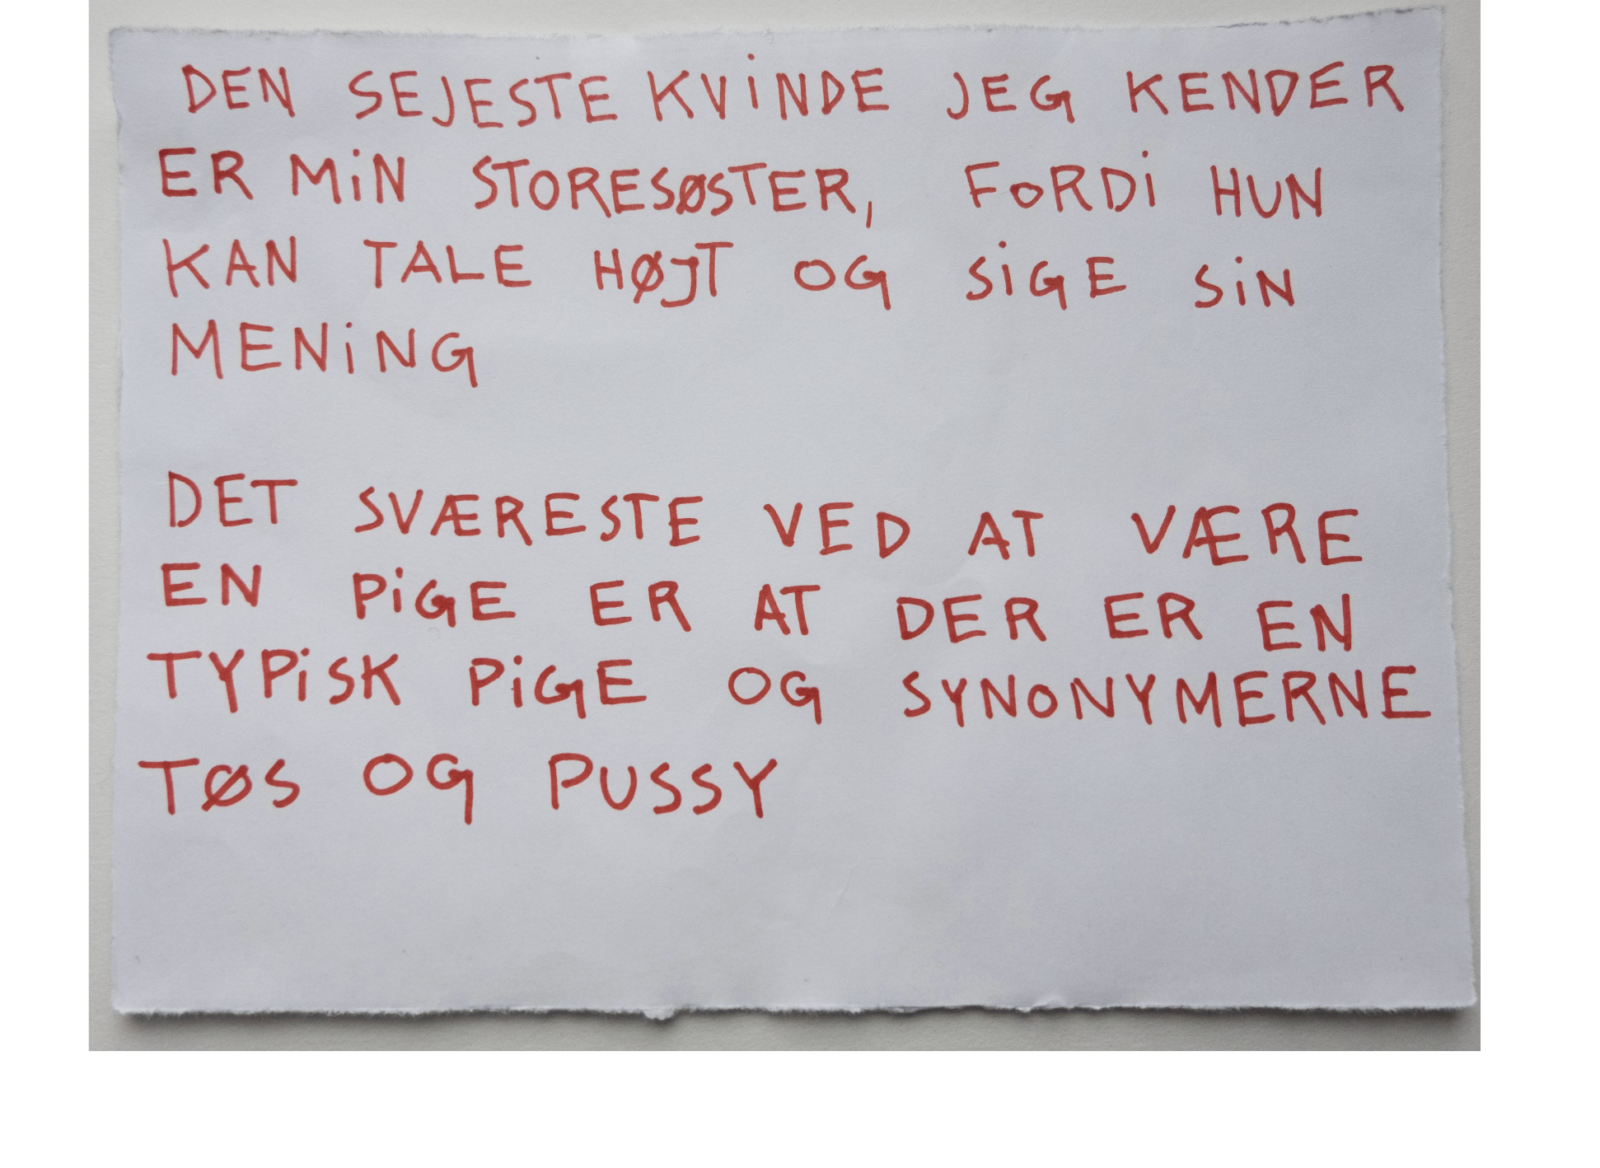 DEN SEJESTE KVINDE JEG KENDER
ER MIN STORESØSTER, FORDI HUN
KAN TALE HØJT OG SIGE SIN
MENING
DET SVÆRESTE VED AT VÆRE
EN PIGE ER AT DER ER EN
TYPISK PIGE OG SYNONYMERNE
TØS OG PUSSY